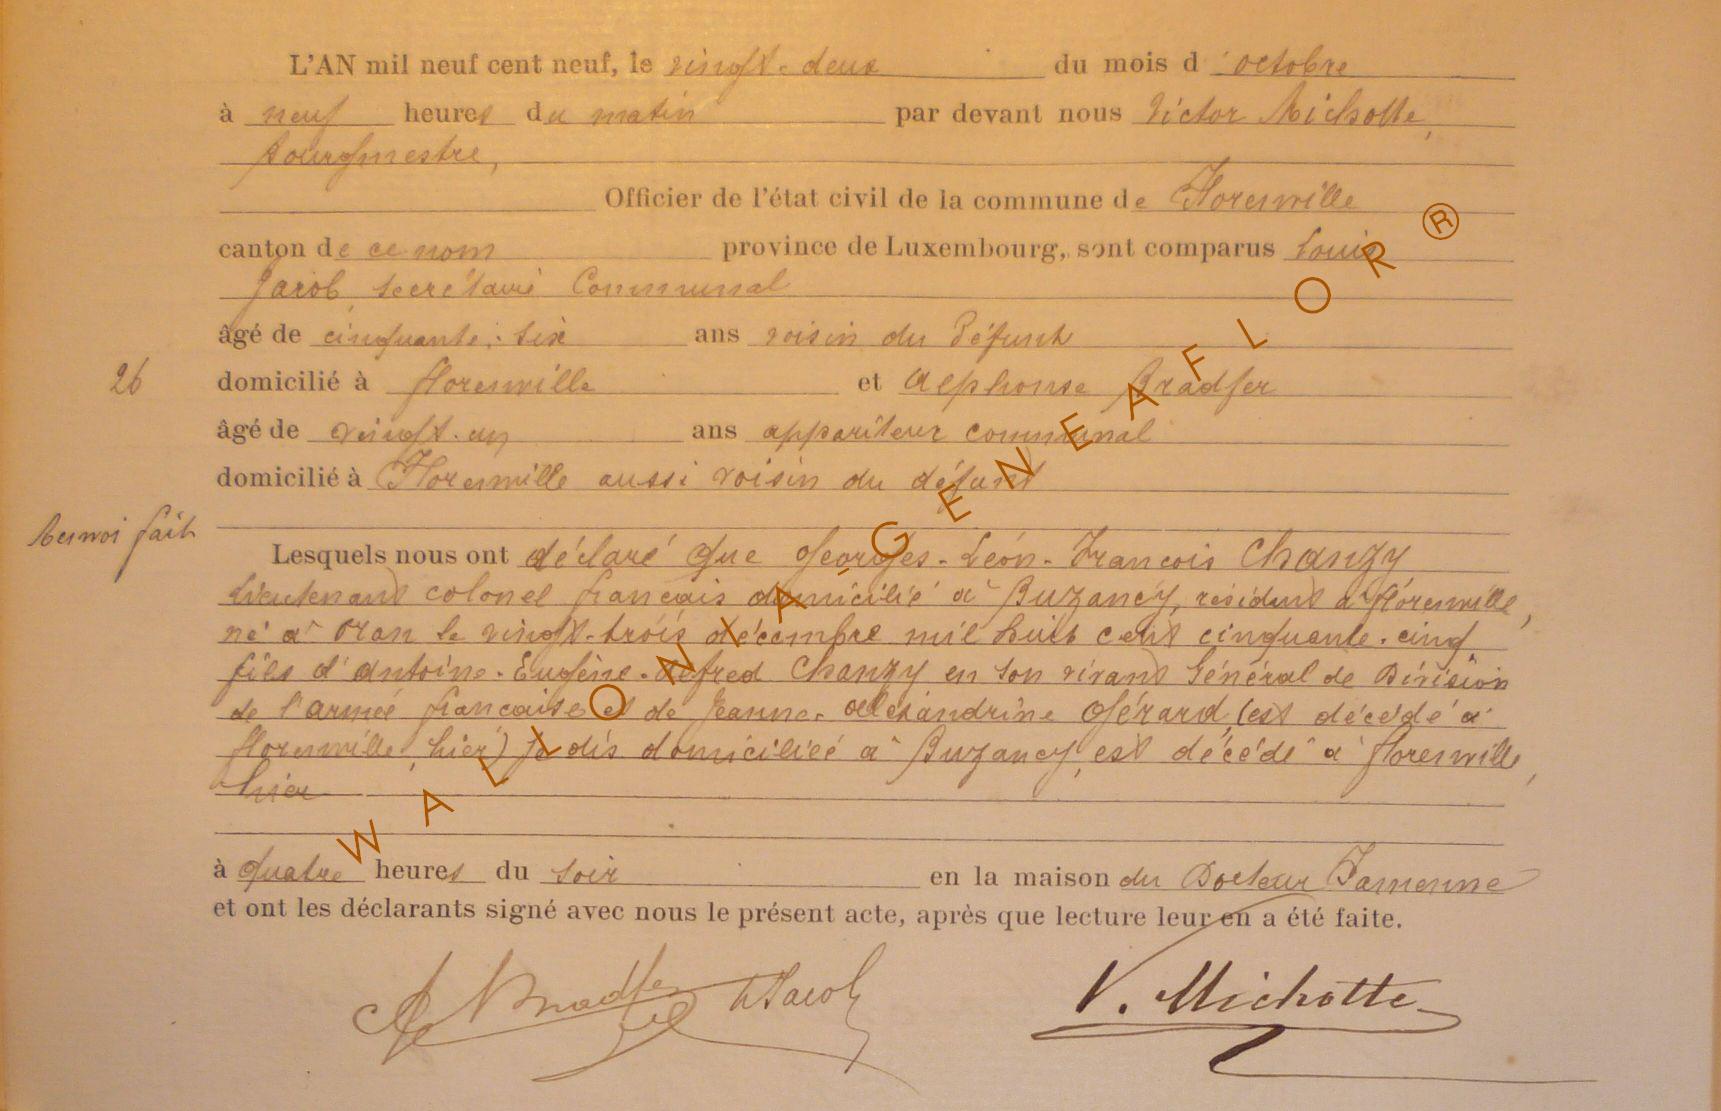 L'AN mil neuf cent neuf, le vingt-deux du mois d'octobre
à neuf heures du matin par devant nous Victor Michotte,
bourgmestre,
Officier de l'état civil de la commune de Florenville
canton de ce nom province de Luxembourg, sont comparus Louis
Jacob, secrétaire Communal
âgé de cinquante-six ans voisin du Défunt
26
domicilié à florenville et Alphonse Bradfer
âgé de vingt-un ans appariteur communal
domicilié à Florenville aussi voisin du défunt
Renvoi fait
Lesquels nous ont déclaré que Georges-Léon-François Chanzy
Lieutenant colonel français domicilié à Buzancy, résidant à florenville,
né à Oran le vingt-trois décembre mil huit cent cinquante-cinq
fils d'Antoine-Eugène-Alfred Chanzy en son vivant Général de Division
de l'armée française et de Jeanne-Alexandrine Gérard, (est décédé à
florenville, hier) je dis domiciliée à Buzancy, est décédé à florenville,
hier
à quatre heures du soir en la maison du Docteur Famenne
et ont les déclarants signé avec nous le présent acte, après que lecture leur en a été faite.
A Bradfer L Jacob V. Michotte
WALLONIA-GENEAFLOR ®